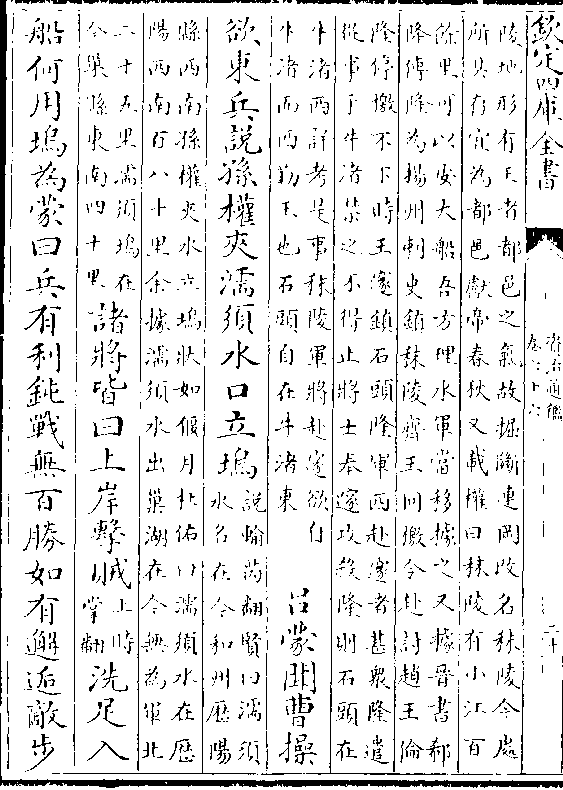 欽定四庫全書
資治通鑑
卷六十六
二十
陵地形有王者都邑之氣故掘斷連岡改名秣陵今處
所具存宜為都邑獻帝春秋又載權曰秣陵有小江百
餘里可以安大船吾方理水軍當移據之又據晉書郗
隆傳隆為揚州刺史鎮秣陵齊王冏檄令赴討趙王倫
隆停檄不下時王邃鎮石頭隆軍西赴邃者甚衆隆遣
從事于牛渚禁之不得止將士奉邃攻殺隆則石頭在
牛渚西詳考是事秣陵軍將赴邃欲自
牛渚而西勤王也石頭自在牛渚東
呂蒙聞曹操
欲東兵說孫權夾濡須水口立塢
說輸芮翻賢曰濡須
水名在今和州歷陽
縣西南孫權夾水立塢狀如偃月杜佑曰濡須水在歷
陽西南百八十里余據濡須水出巢湖在今無為軍北
二十五里濡須塢在
今巢縣東南四十里
諸將皆曰上岸擊賊
上時
掌翻
洗足入
船何用塢為蒙曰兵有利鈍戰無百勝如有邂逅敵步